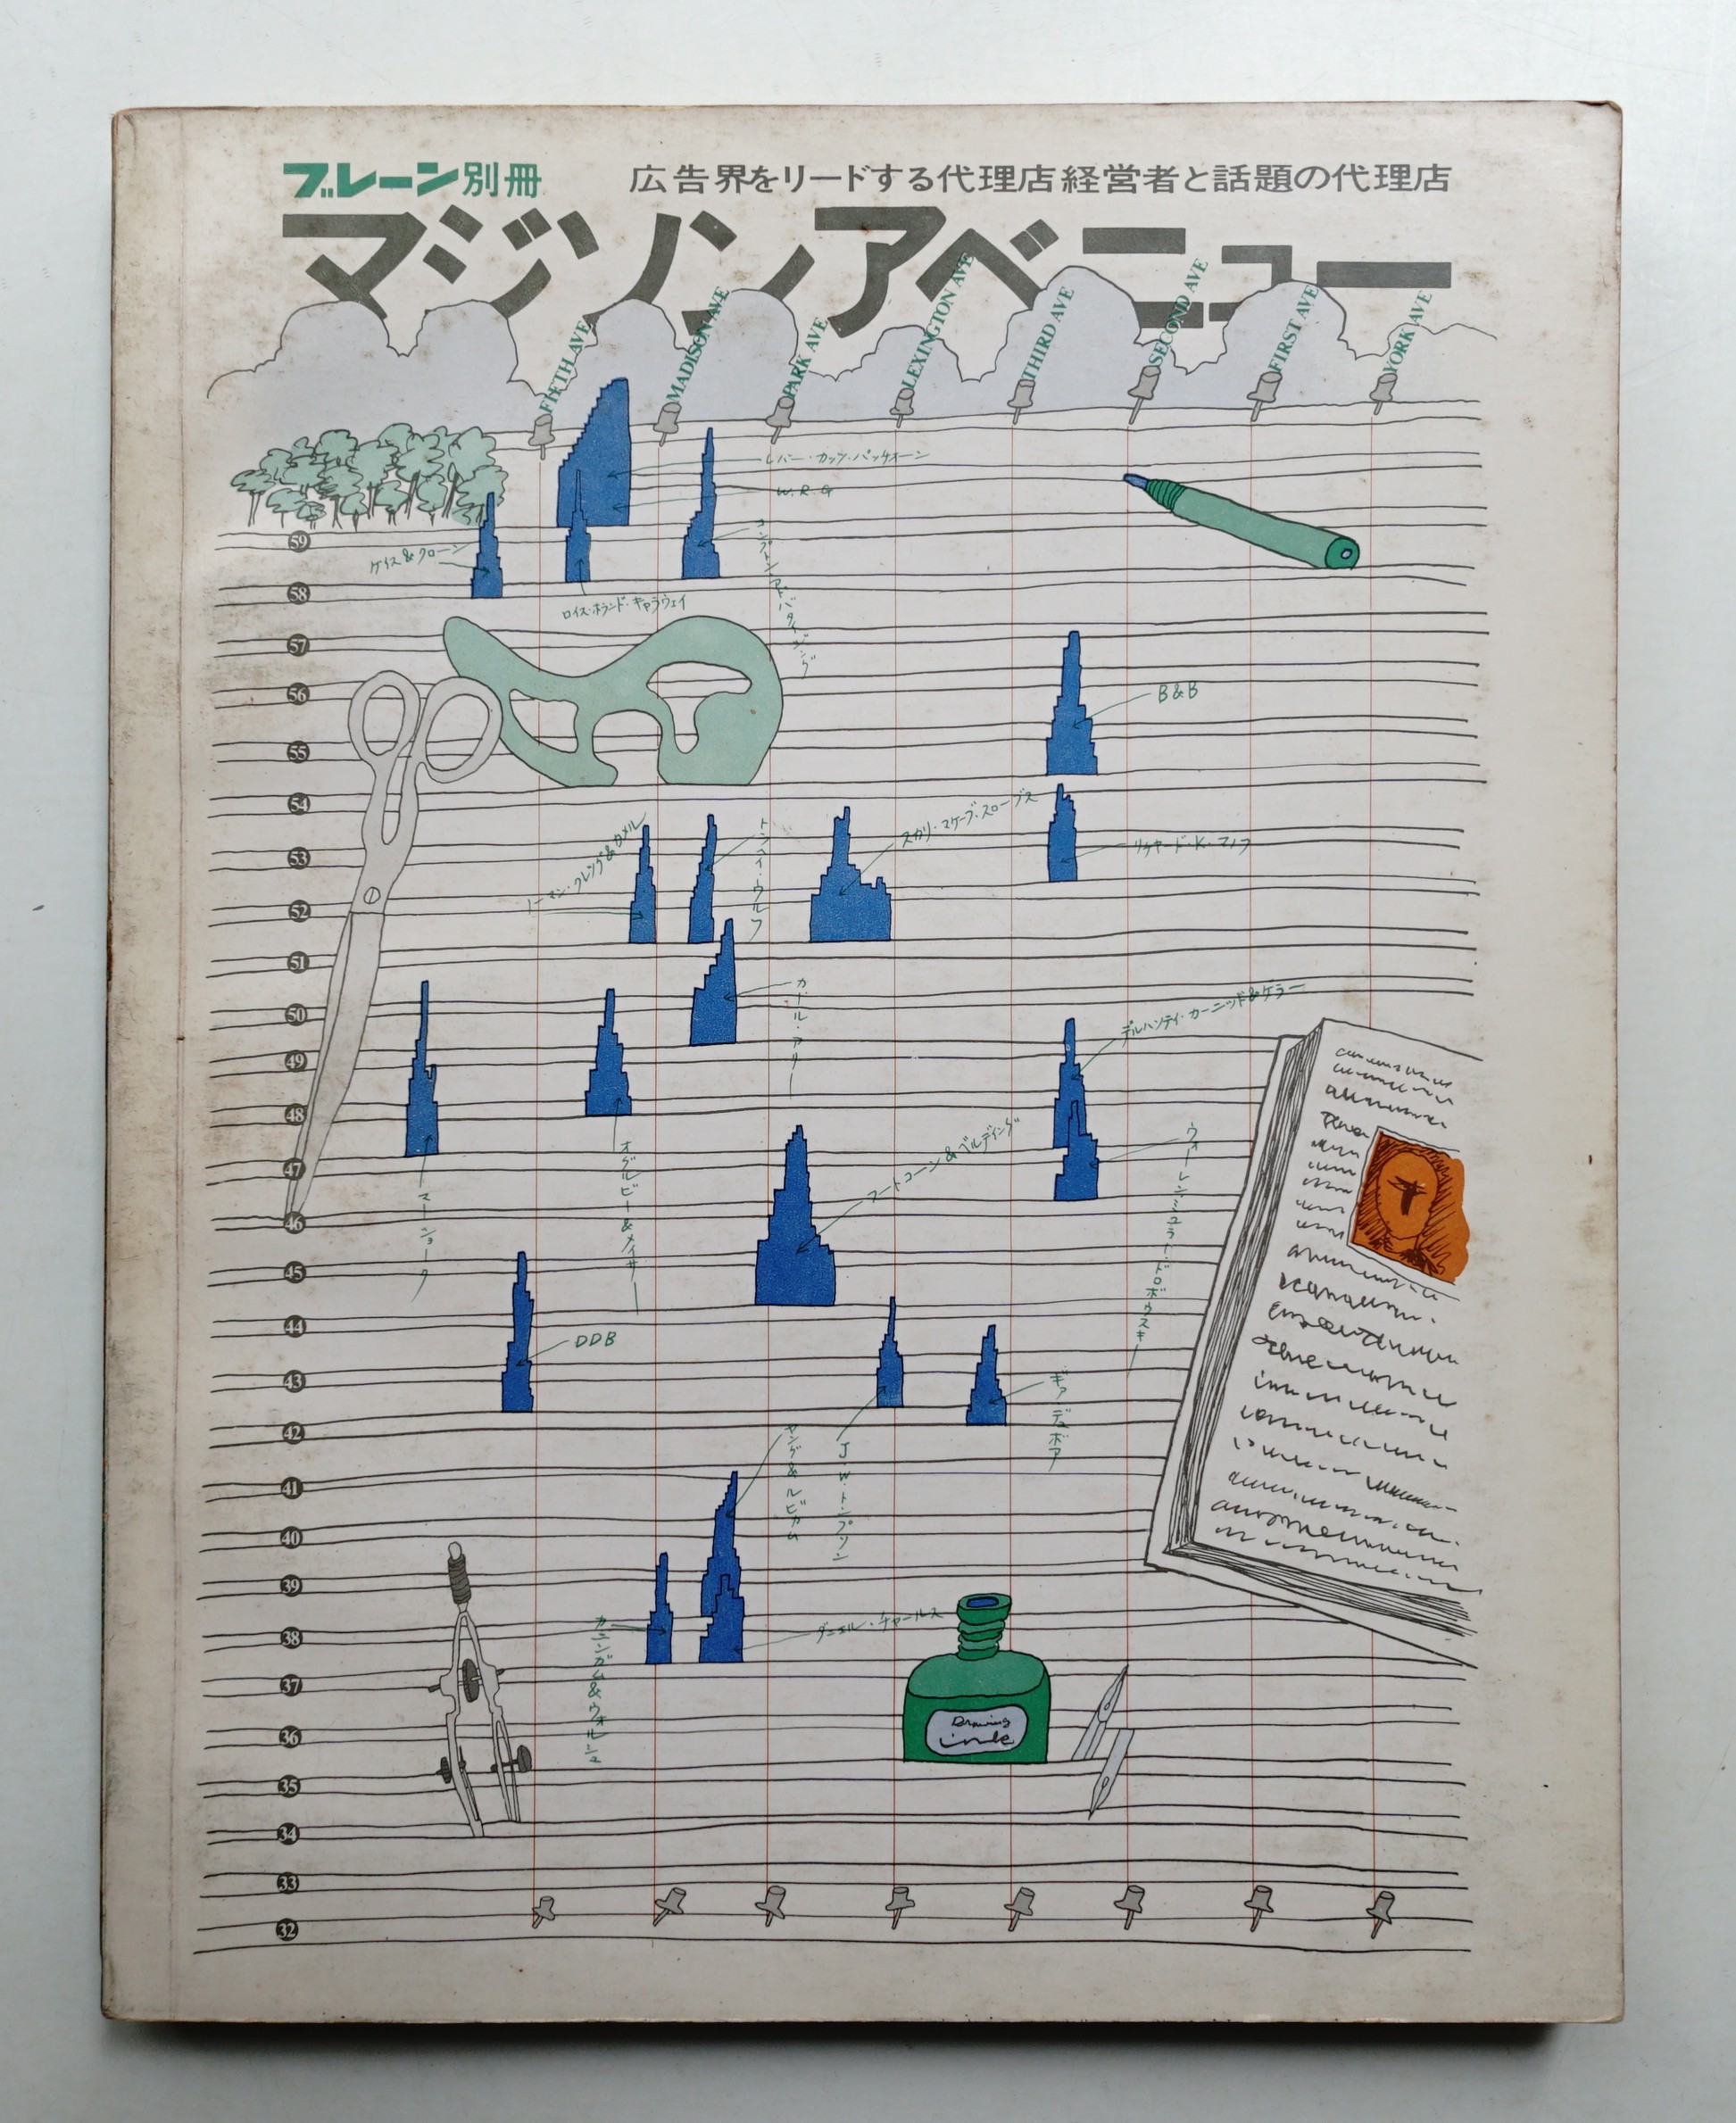 ブレーン別冊
広告界をリードする代理店経営者と話題の代理店
マジソンアベニュー
FIFTH AVE
MADISON AVE
PARK AVE
LEXINGTON AVE
THIRD AVE
SECOND AVE
FIRST AVE
YORK AVE
W.R.G
59
ケイス&クローン
58
ロイス・ホランド・キャラウェイ
コンプトン・アドバタイジング
57
56
B&B
55
54
スカリ・マケーブ・スローブス
ノーマン・クレイグ&カメル
53
リチャード・K・マノフ
52
51
カール・アリー
50
デルハンティ・カーニッド&ケラー
49
48
オグルビー&メイザー
フートコーン&ベルディング
47
46
45
44
DDB
43
ギア デュボア
42
ヤング&ルビカム
J.W.トンプソン
41
40
39
38
ダニエル・チャールス
カニンガム&ウォルシュ
37
Drawing
ink
36
35
34
33
32